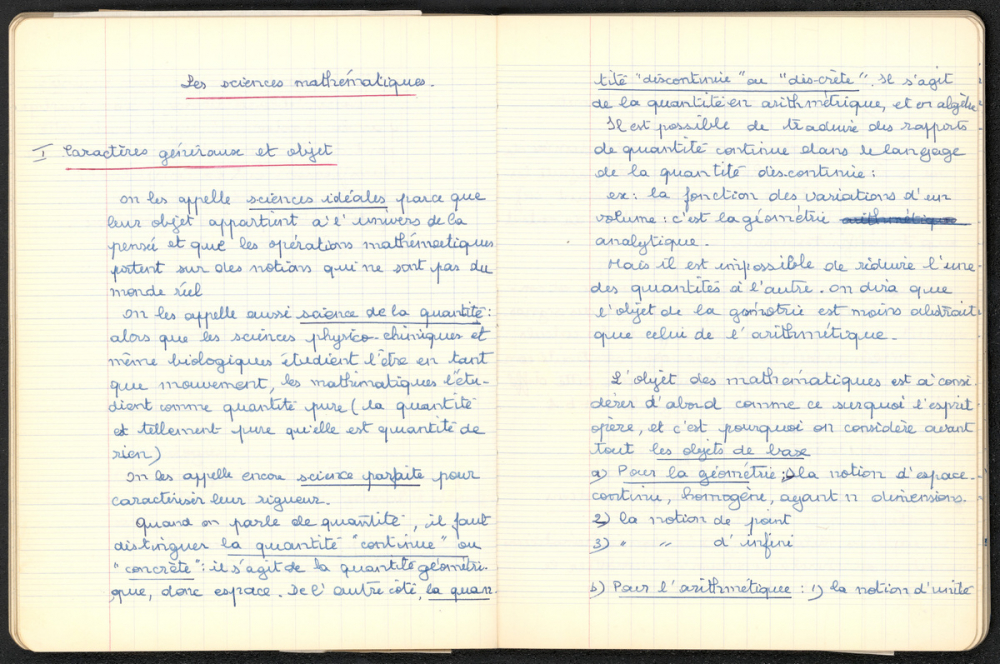 Les sciences mathématiques.
I Caractères généraux et objet
On les appelle sciences idéales parce que
leur objet appartient à l'univers de la
pensé et que les opérations mathématiques
portent sur des notions qui ne sont pas du
monde réel
On les appelle aussi science de la quantité :
alors que les sciences physico-chimiques et
même biologiques étudient l'être en tant
que mouvement, les mathématiques l'étu-
dient comme quantité pure (la quantité
est tellement pure qu'elle est quantité de
rien)
On les appelle encore science parfaite pour
caractériser leur rigueur.
Quand on parle de quantité, il faut
distinguer la quantité "continue" ou
"concrète" : il s'agit de la quantité géométri-
que, donc espace. De l'autre côté, la quan-
tité "discontinue" ou "dis-crète". Il s'agit
de la quantité en arithmétique, et en algèbre
Il est possible de traduire des rapports
de quantité continue dans le langage
de la quantité discontinue :
ex : la fonction des variations d'un
volume : c'est la géométrie arithmétique
analytique.
Mais il est impossible de réduire l'une
des quantités à l'autre. On dira que
l'objet de la gométrie est moins abstrait
que celui de l'arithmétique.
L'objet des mathématiques est à consi-
dérer d'abord comme ce sur quoi l'esprit
opère, et c'est pourquoi on considère avant
tout les objets de base
a) Pour la géométrie : 1) la notion d'espace
continu, homogène, ayant n dimensions.
2) la notion de point
3) " " d'infini
b) Pour l'arithmétique : 1) la notion d'unité